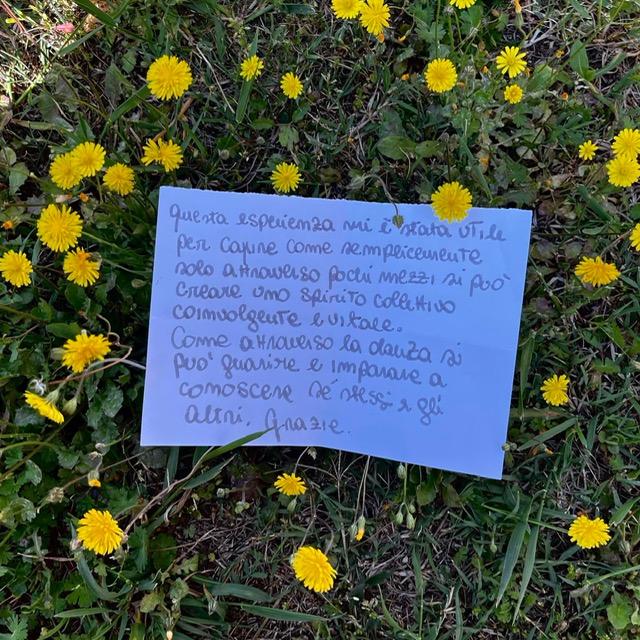 Questa esperienza mi è stata utile
per capire come semplicemente
solo attraverso pochi mezzi si può
creare uno spirito collettivo
coinvolgente e vitale.
Come attraverso la danza si
può guarire e imparare a
conoscere sé stessi e gli
altri. Grazie.